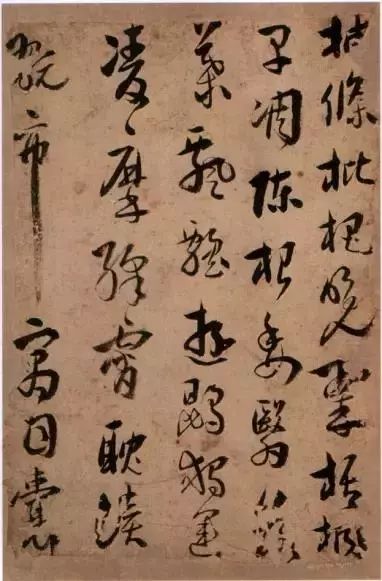 抽條枇杷晚翠梧桐
早凋陳根委翳落
葉飄飖遊鵾獨運
凌摩絳霄耽讀
翫市寓目囊